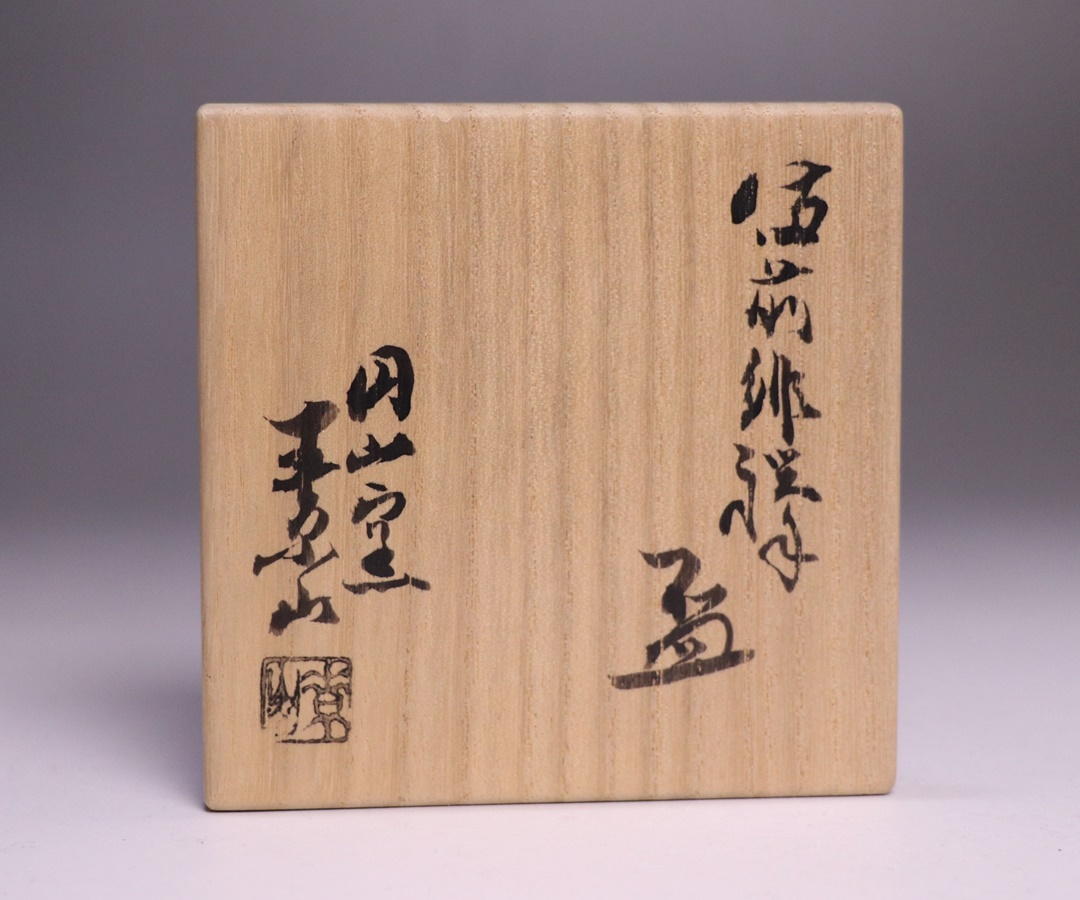 備前緋襷
盃
円山窯